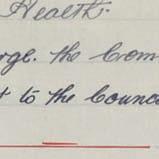 Health.
rge. the Com
t to the Counc